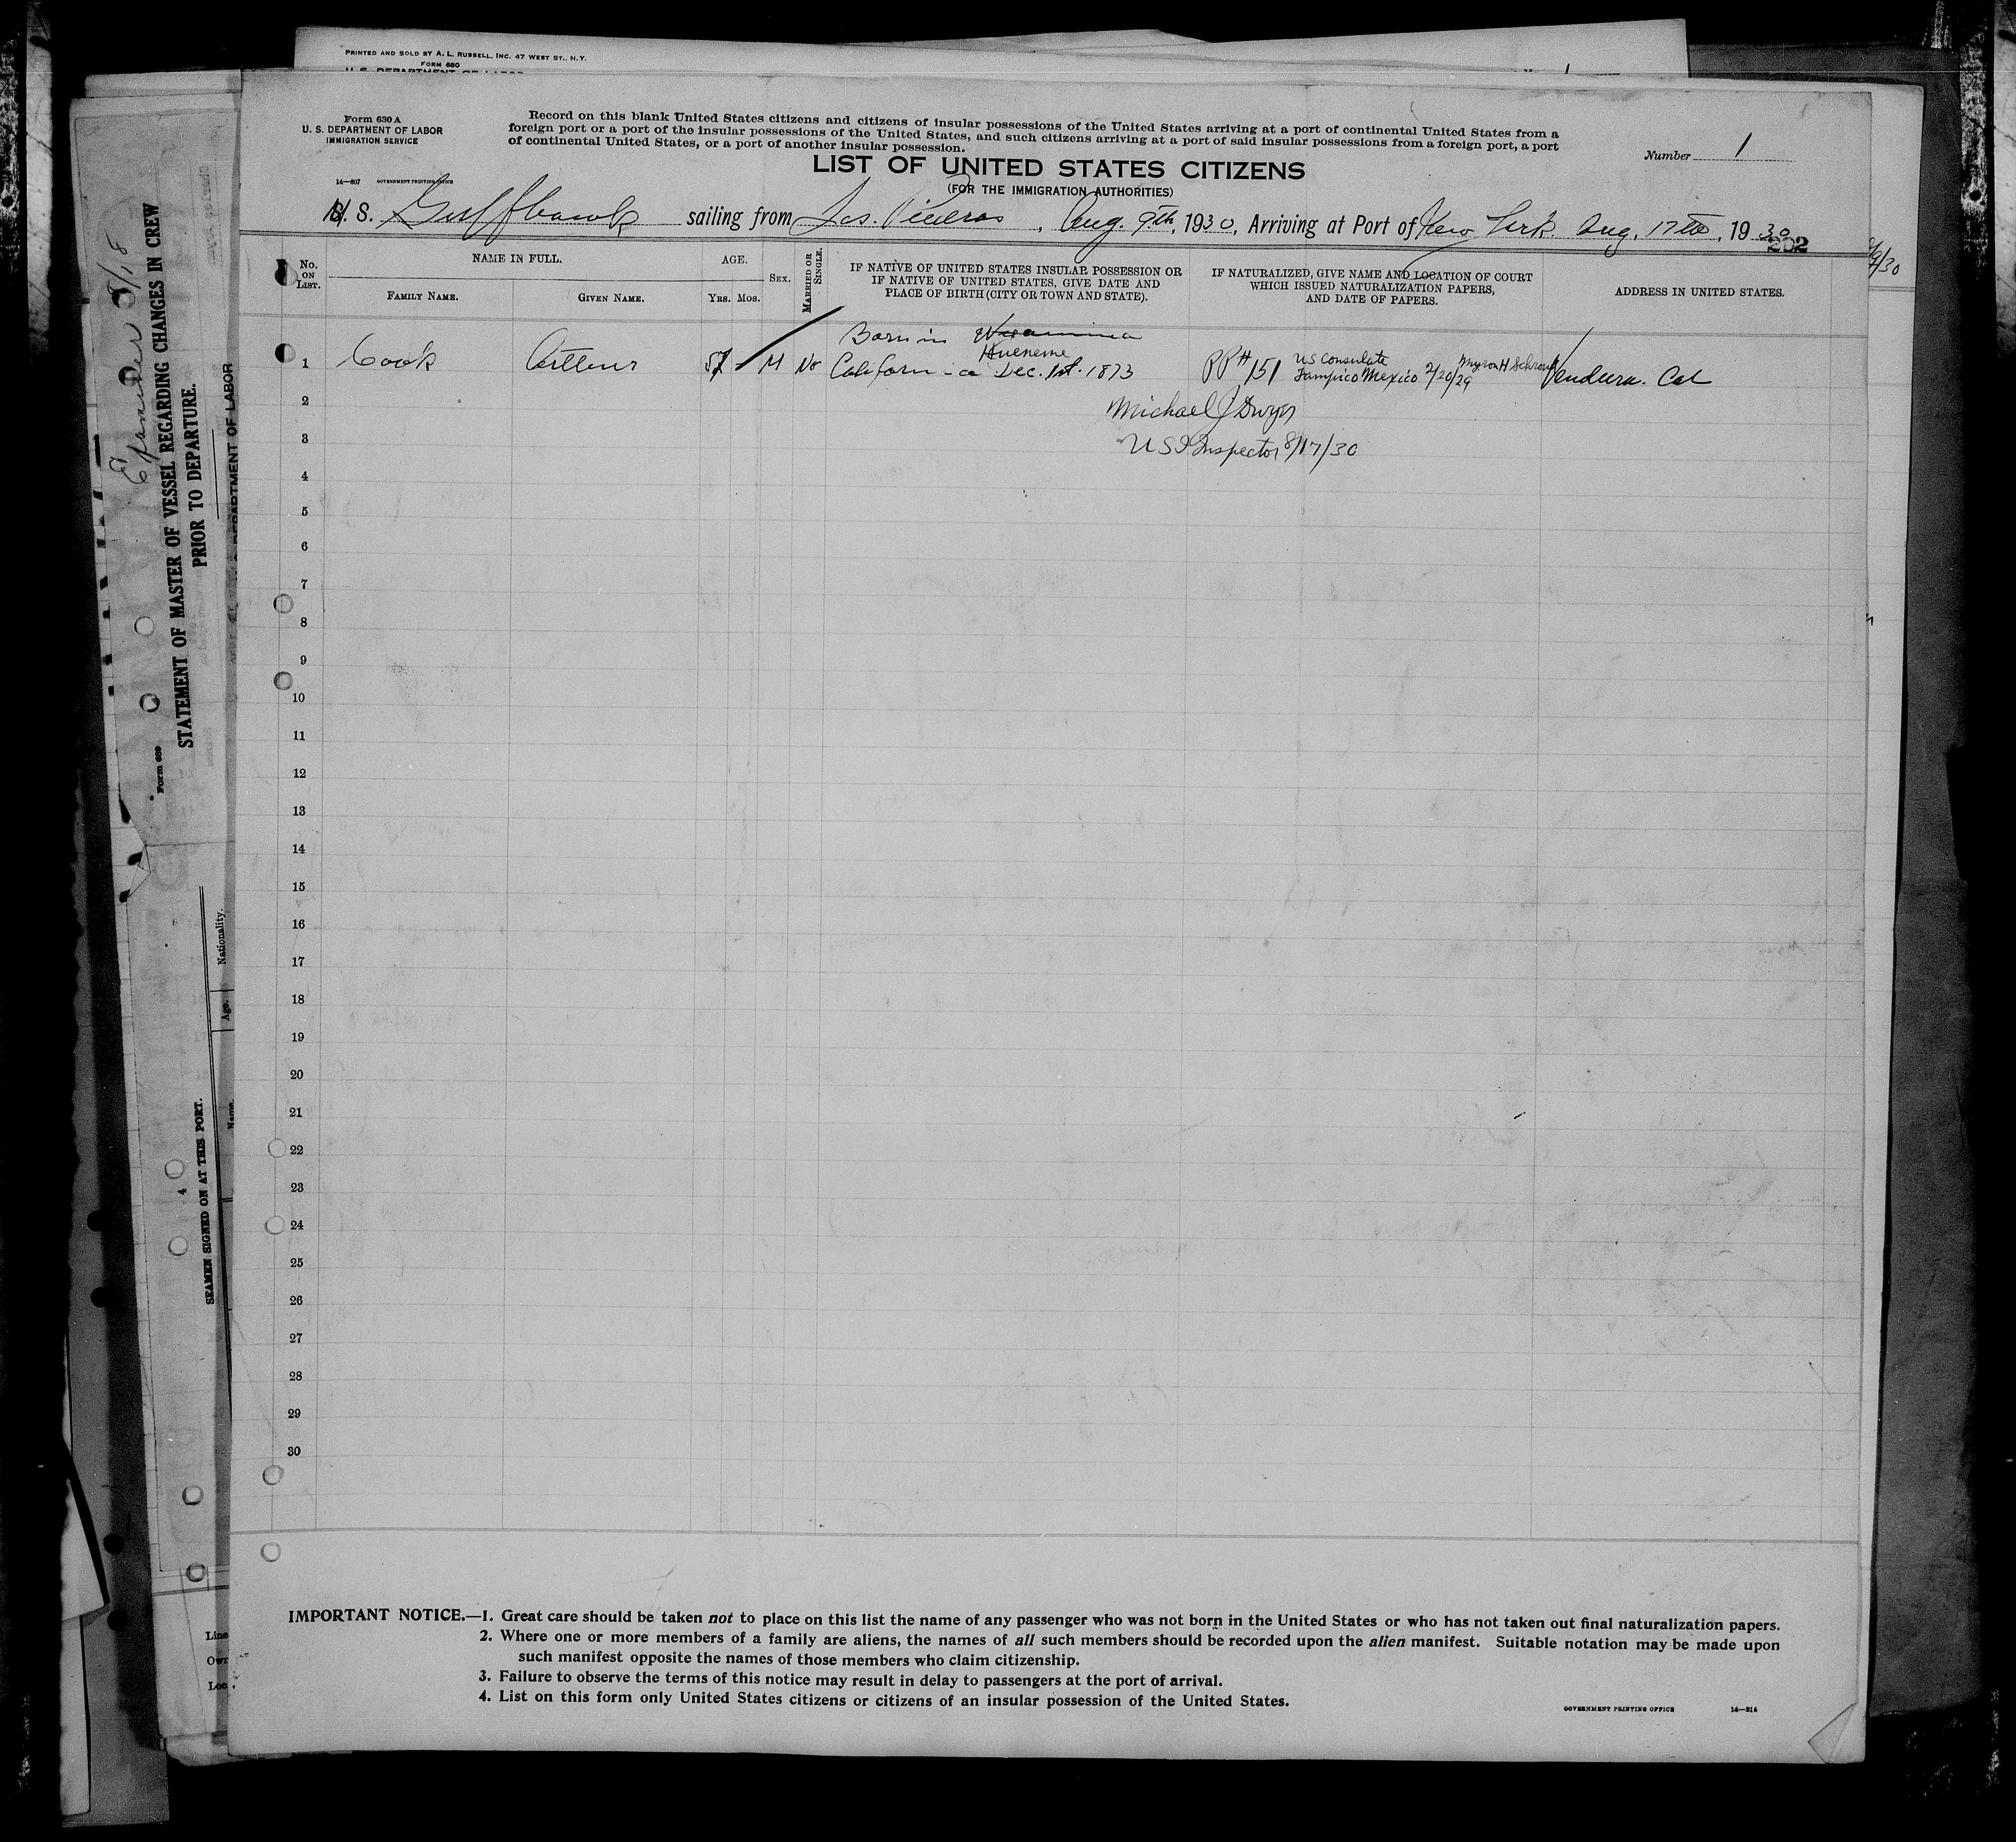 PRINTED AND SOLD BY A. L. RUSSELL, INC. 47 WEST ST., N.Y.
FORM 680
U. S. DEPARTMENT OF LABOR
Form 630 A
U. S. DEPARTMENT OF LABOR
IMMIGRATION SERVICE
Record on this blank United States citizens and citizens of insular possessions of the United States arriving at a port of continental United States from a
foreign port or a port of the insular possessions of the United States, and such citizens arriving at a port of said insular possessions from a foreign port, a port
of continental United States, or a port of another insular possession.
Number 1
LIST OF UNITED STATES CITIZENS
(FOR THE IMMIGRATION AUTHORITIES)
14—607 GOVERNMENT PRINTING OFFICE
S. sailing from Aug. 9th, 1930, Arriving at Port of New York Aug. 17th, 1930
202
No. ON LIST.
NAME IN FULL.
FAMILY NAME.
GIVEN NAME.
AGE.
YRS. MOS.
SEX.
MARRIED OR SINGLE.
IF NATIVE OF UNITED STATES INSULAR POSSESSION OR
IF NATIVE OF UNITED STATES, GIVE DATE AND
PLACE OF BIRTH (CITY OR TOWN AND STATE).
IF NATURALIZED, GIVE NAME AND LOCATION OF COURT
WHICH ISSUED NATURALIZATION PAPERS,
AND DATE OF PAPERS.
ADDRESS IN UNITED STATES.
Born in
Hueneme
1 Cook Arthur 57 M No California Dec. 1st. 1873 PP# 151 US Consulate Tampico Mexico 2/20/29 Myron H Cal
2 Michael J Dwyer
3 US Inspector 8/17/30
4
5
6
7
8
9
10
11
12
13
14
15
16
17
18
19
20
21
22
23
24
25
26
27
28
29
30
IMPORTANT NOTICE.—1. Great care should be taken not to place on this list the name of any passenger who was not born in the United States or who has not taken out final naturalization papers.
2. Where one or more members of a family are aliens, the names of all such members should be recorded upon the alien manifest. Suitable notation may be made upon
such manifest opposite the names of those members who claim citizenship.
3. Failure to observe the terms of this notice may result in delay to passengers at the port of arrival.
4. List on this form only United States citizens or citizens of an insular possession of the United States.
GOVERNMENT PRINTING OFFICE 14—214
8/18
Form 689
STATEMENT OF MASTER OF VESSEL REGARDING CHANGES IN CREW
PRIOR TO DEPARTURE.
DEPARTMENT OF LABOR
Nationality.
Age.
Name.
4
SEAMEN SIGNED ON AT THIS PORT.
Line
Own
Loc